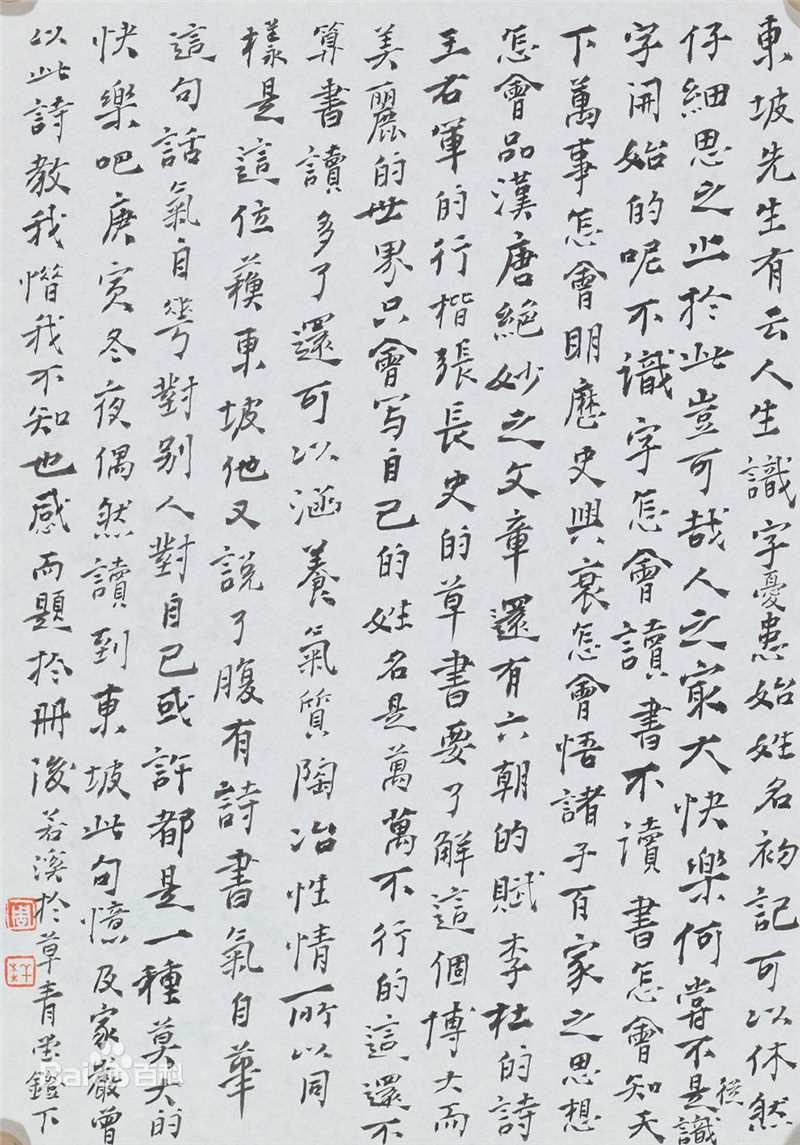 東坡先生有云人生識字憂患始姓名初記可以休然
仔細思之止於此豈可哉人之㝡大快樂何嘗不是從識
字開始的呢不識字怎會讀書不讀書怎會知天
下萬事怎會明歷史興衰怎會悟諸子百家之思想
怎會品漢唐絕妙之文章還有六朝的賦李杜的詩
王右軍的行楷張長史的草書要了解這個博大而
美麗的世界只會写自己的姓名是萬萬不行的這還不
算書讀多了還可以涵養氣質陶冶性情所以同
樣是這位蘓東坡他又說了腹有詩書氣自華
這句話氣自華對别人對自己或許都是一種莫大的
快樂吧庚寅冬夜偶然讀到東坡此句憶及家嚴曾
以此詩教我憯我不知也感而題於册後若溪於草青堂鐙下
周
Baidu百科